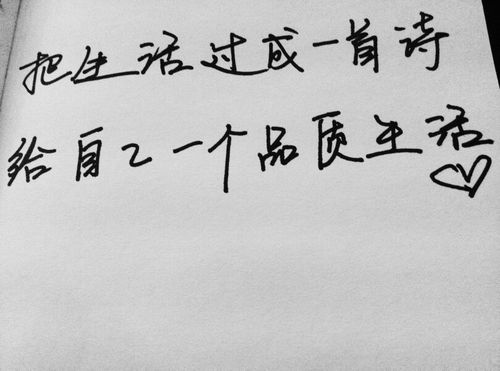 把生活过成一首诗
给自己一个品质生活